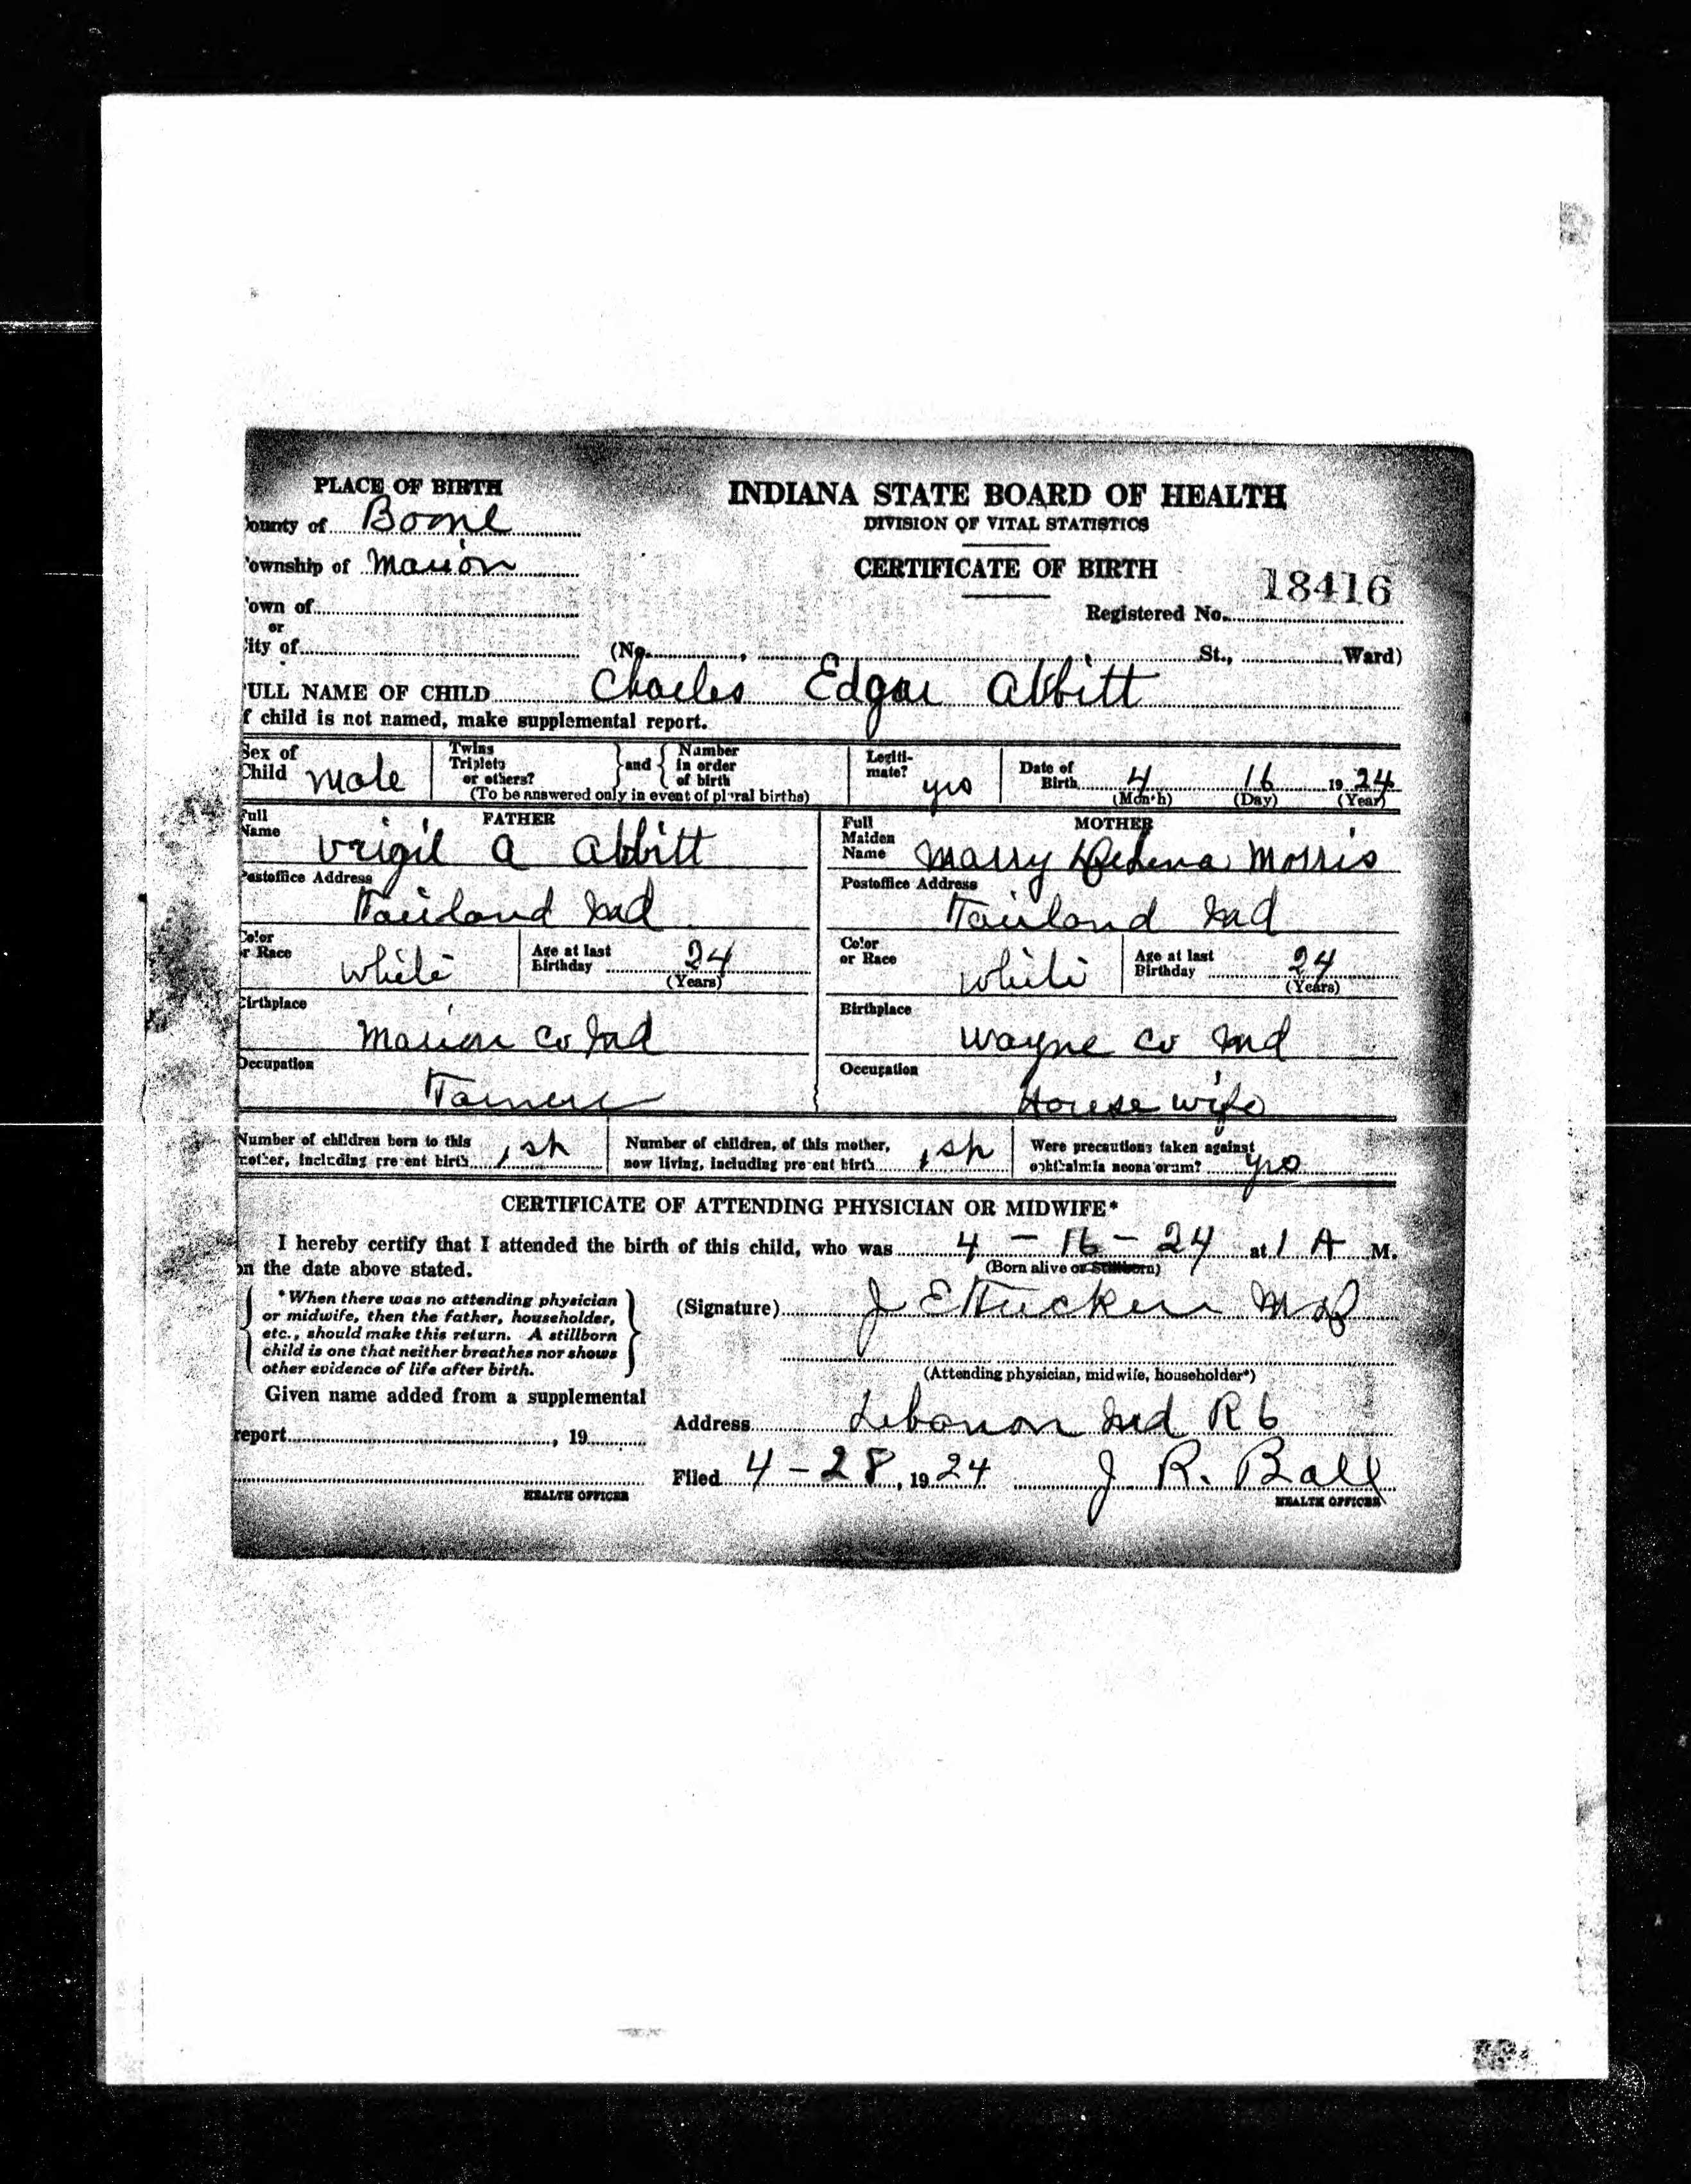 PLACE OF BIRTH
ounty of Boone
ownship of Marion
own of
or
ity of
INDIANA STATE BOARD OF HEALTH
DIVISION OF VITAL STATISTICS
CERTIFICATE OF BIRTH
18416
Registered No.
(No. , St., Ward)
ULL NAME OF CHILD Charles Edgar Abbitt
f child is not named, make supplemental report.
Sex of Child Male
Twins Triplets or others? and Number in order of birth
(To be answered only in event of plural births)
Legiti-mate? yes
Date of Birth 4 16 19 24
(Month) (Day) (Year)
FATHER
Full Name Vrigil A Abbitt
Postoffice Address
Ind
Color or Race White
Age at last Birthday 24
(Years)
Birthplace
Marion Co Ind
Occupation
Farmer
MOTHER
Full Maiden Name Marry Morris
Postoffice Address
Ind
Color or Race White
Age at last Birthday 24
(Years)
Birthplace
Wayne Co Ind
Occupation
House wife
Number of children born to this
mother, including present birth 1
Number of children, of this mother,
now living, including present birth 1
Were precautions taken against
ophthalmia neonatorum? yes
CERTIFICATE OF ATTENDING PHYSICIAN OR MIDWIFE*
I hereby certify that I attended the birth of this child, who was 4 - 16 - 24 at 1 A M.
(Born alive or Stillborn)
on the date above stated.
*When there was no attending physician
or midwife, then the father, householder,
etc., should make this return. A stillborn
child is one that neither breathes nor shows
other evidence of life after birth.
(Signature) J E Tucker MD
(Attending physician, midwife, householder*)
Given name added from a supplemental
report , 19
HEALTH OFFICER
Address Lebanon Ind R 6
Filed 4 - 28, 19 24 J. R. Ball
HEALTH OFFICER